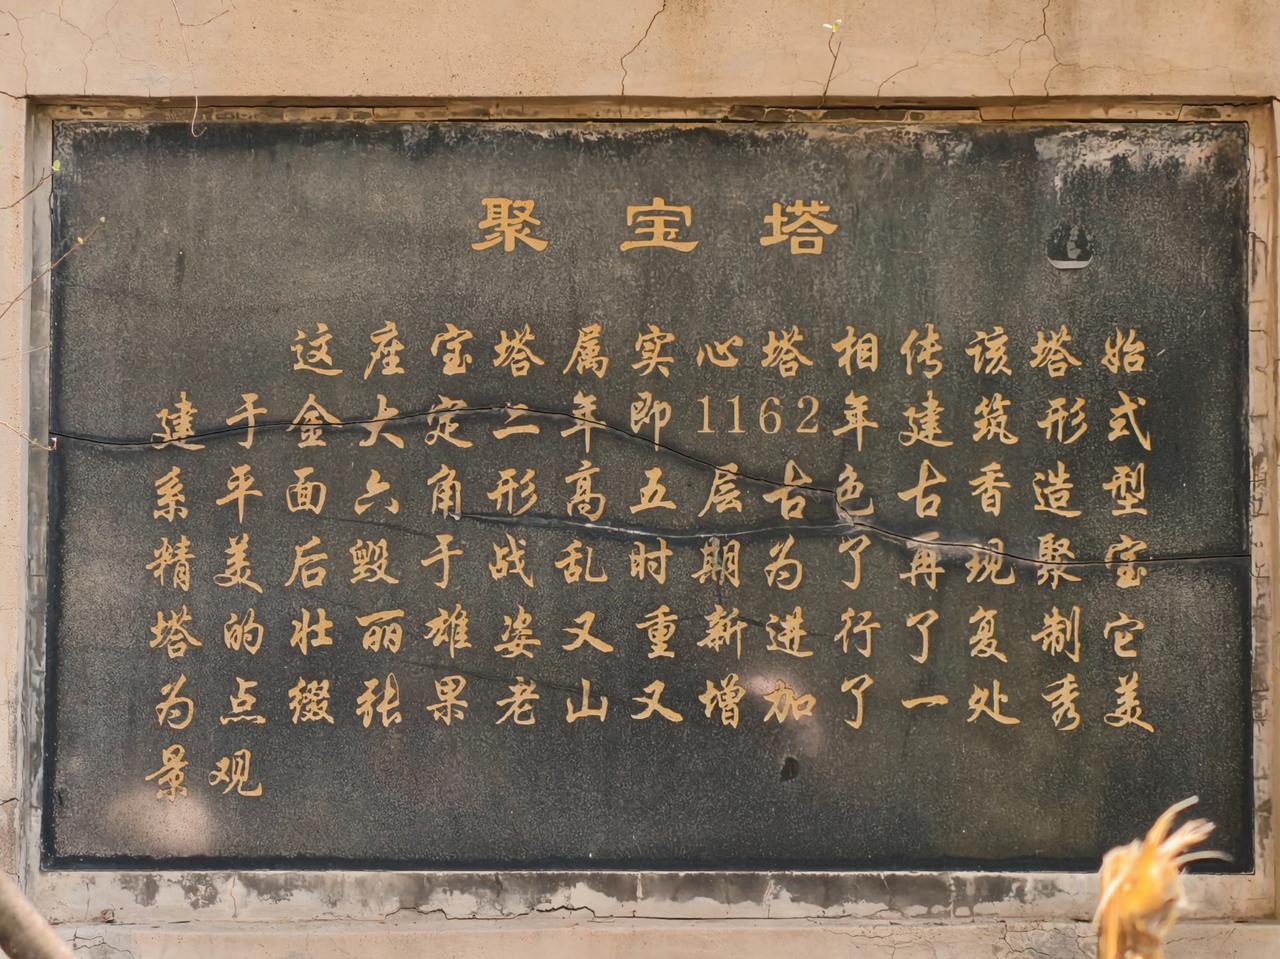 聚宝塔
这座宝塔属实心塔相传该塔始
建于金大定二年即1162年建筑形式
系平面六角形高五层古色古香造型
精美后毁于战乱时期为了再现聚宝
塔的壮丽雄姿又重新进行了复制它
为点缀张果老山又增加了一处秀美
景观